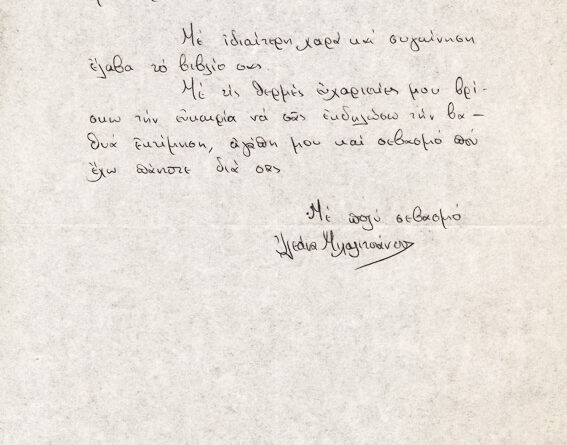 Μέ ἰδιαίτερη χαρά καί συγκίνηση
ἔλαβα τό βιβλίο σας.
Μέ τίς θερμές εὐχαριστίες μου βρί-
σκω τήν εὐκαιρία νά σᾶς ἐκδηλώσω τήν βα-
θυά ἐκτίμηση, ἀγάπη μου καί σεβασμό πού
ἔχω πάντοτε διά σας
Μέ πολύ σεβασμό